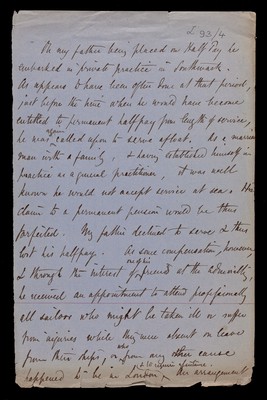 L 93/4
On my father being placed on Half Pay he
embarked in private practice in Southwark.
As appears to have been often done at that period,
just before the time when he would have become
entitled to permanent halfpay from length of service,
he was again called upon to serve afloat. As a married
man with a family, & having established himself in
practice as a general practitioner, it was well
known he would not accept service at sea. His
claim to a permanent pension would be thus
forfeited. My father declined to serve, & thus
lost his halfpay. As some compensation, however,
& through the interest of a friend at the Admiralty,
he received an appointment to attend professionally
all sailors who might be taken ill or suffer
from injuries while they were absent on leave
from their ships, or who from any other cause
happened to be in London & to require assistance. An arrangement